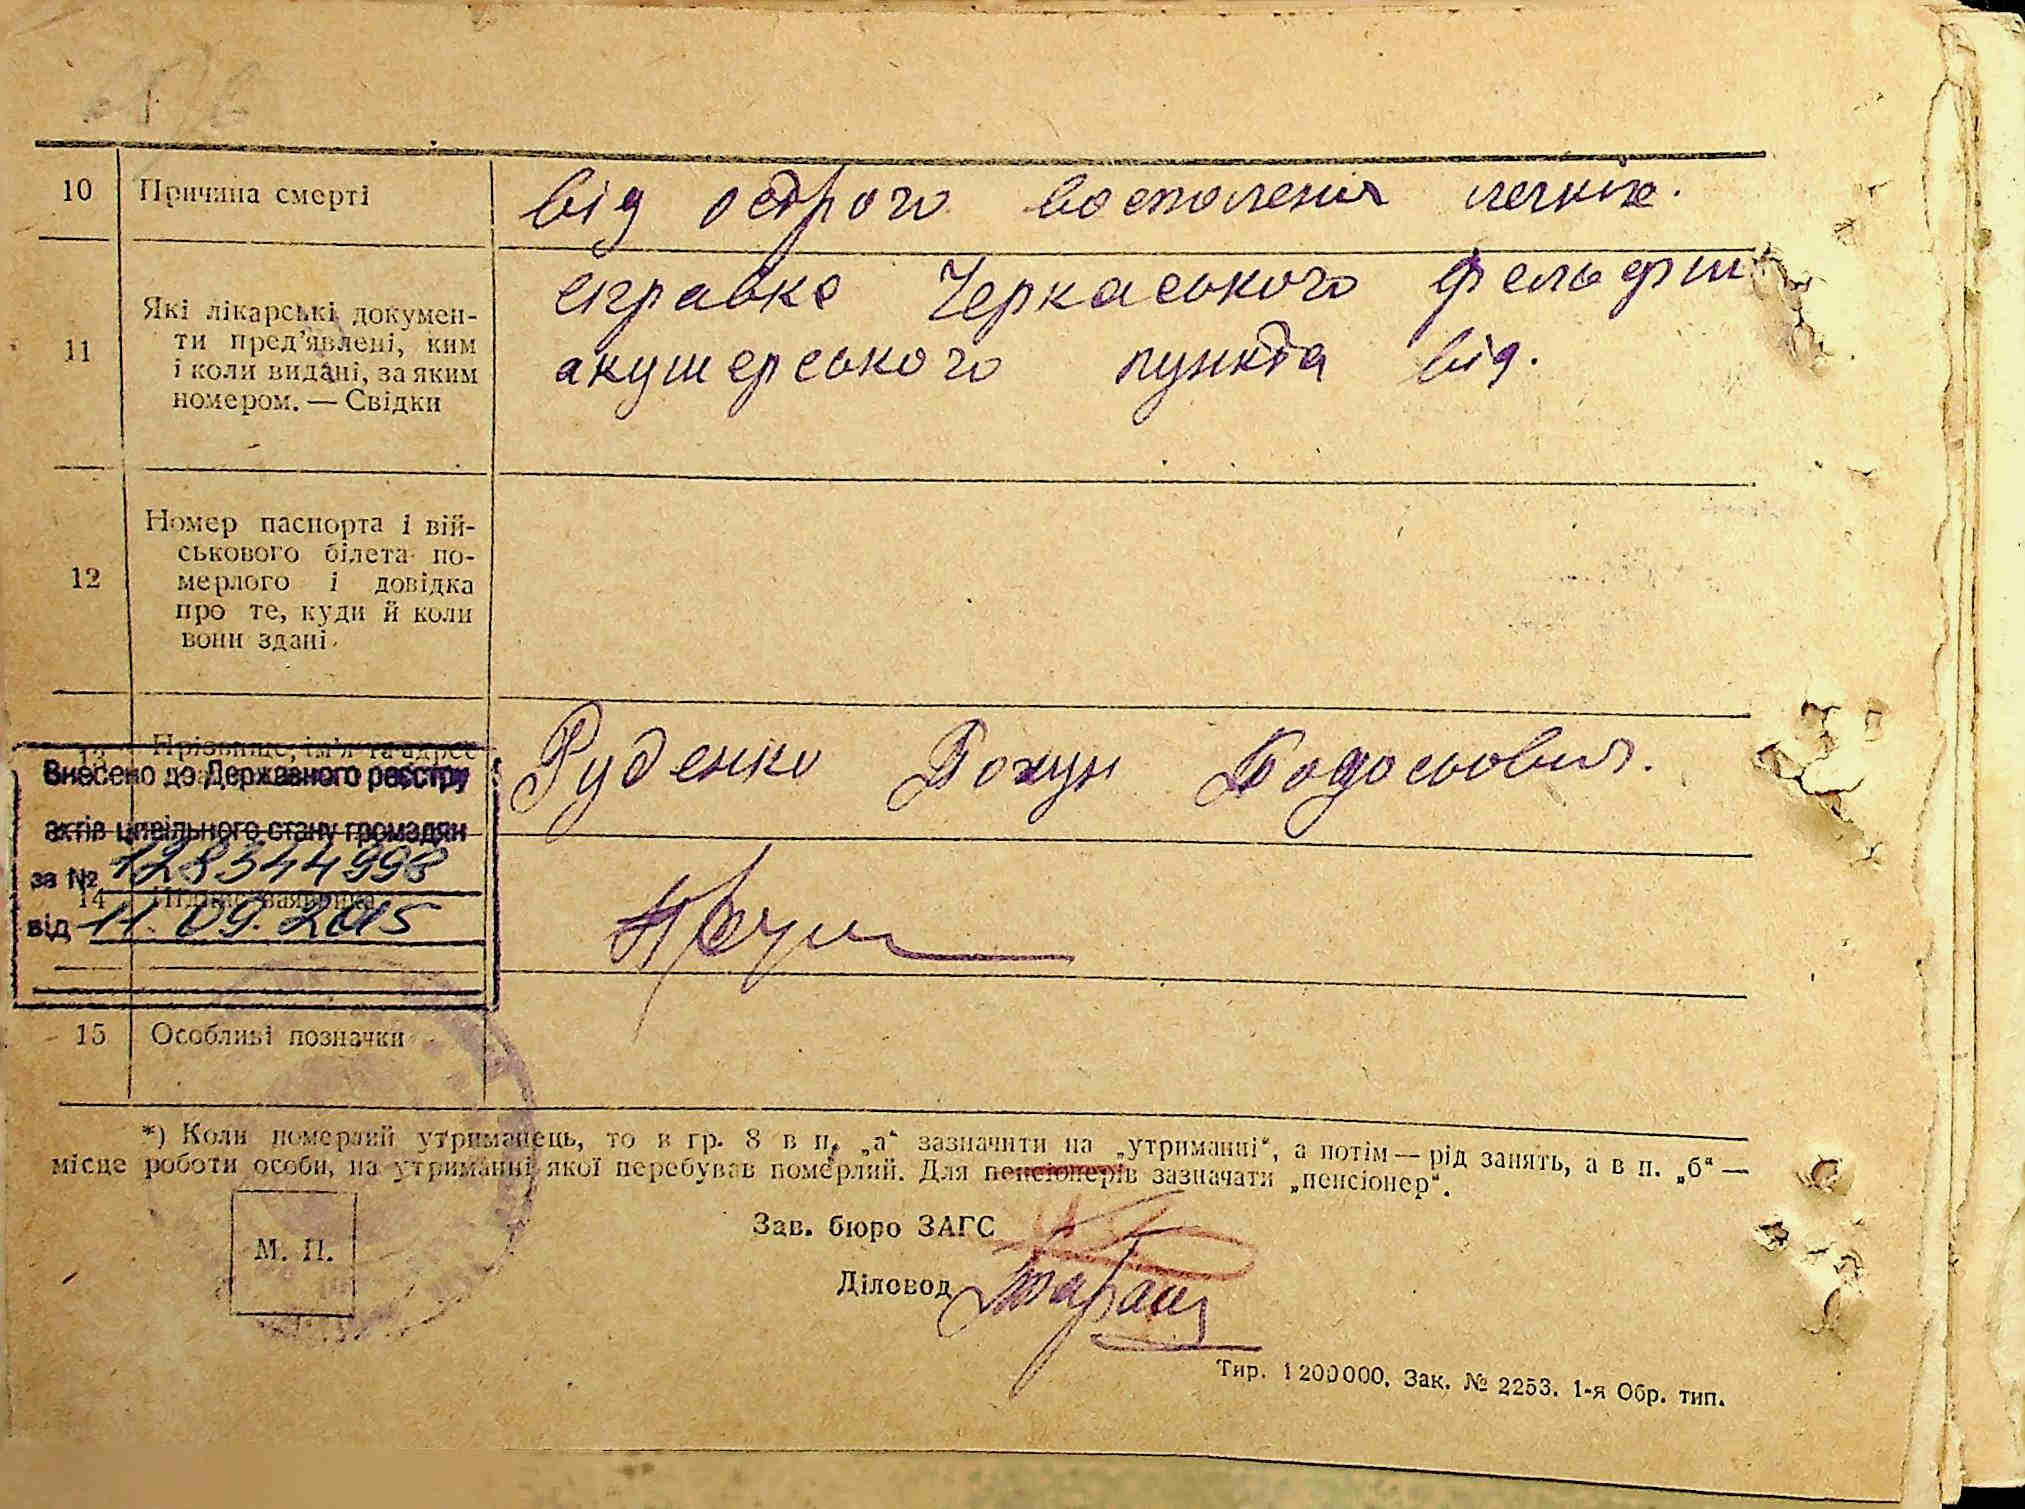 10 Причина смерті
від острого воспаления легких.
11 Які лікарські докумен-
ти пред'явлені, ким
і коли видані, за яким
номером. — Свідки
справка Черкаського фельдш
акушерського пункта від.
12 Номер паспорта і вій-
ськового білета по-
мерлого і довідка
про те, куди й коли
вони здані.
13 Прізвище, ім'я та адрес
Руденко
Внесено до Державного реєстру
актів цивільного стану громадян
за № 128344998
14 Підпис заявника
від 11.09.2015
15 Особливі позначки
*) Коли померлий утриманець, то в гр. 8 в п. „а“ зазначити на „утриманні“, а потім — рід занять, а в п. „б“ —
місце роботи особи, на утриманні якої перебував померлий. Для пенсіонерів зазначати „пенсіонер“.
М. П.
Зав. бюро ЗАГС
Діловод
Тир. 1200000. Зак. № 2253. 1-я Обр. тип.